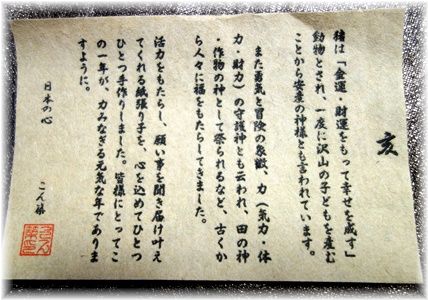 亥
猪は「金運・財運をもって幸せを成す」
動物とされ、一度に沢山の子どもを産む
ことから安産の神様とも言われています。
また勇気と冒険の象徴、力(気力・体
力・財力)の守護神とも云われ、田の神
・作物の神として祭られるなど、古くか
ら人々に福をもたらしてきました。
活力をもたらし、願い事を聞き届け叶え
てくれる紙張り子を、心を込めてひとつ
ひとつ手作りしました。皆様にとってこ
の一年が、力みなぎる元気な年でありま
すように。
日本の心